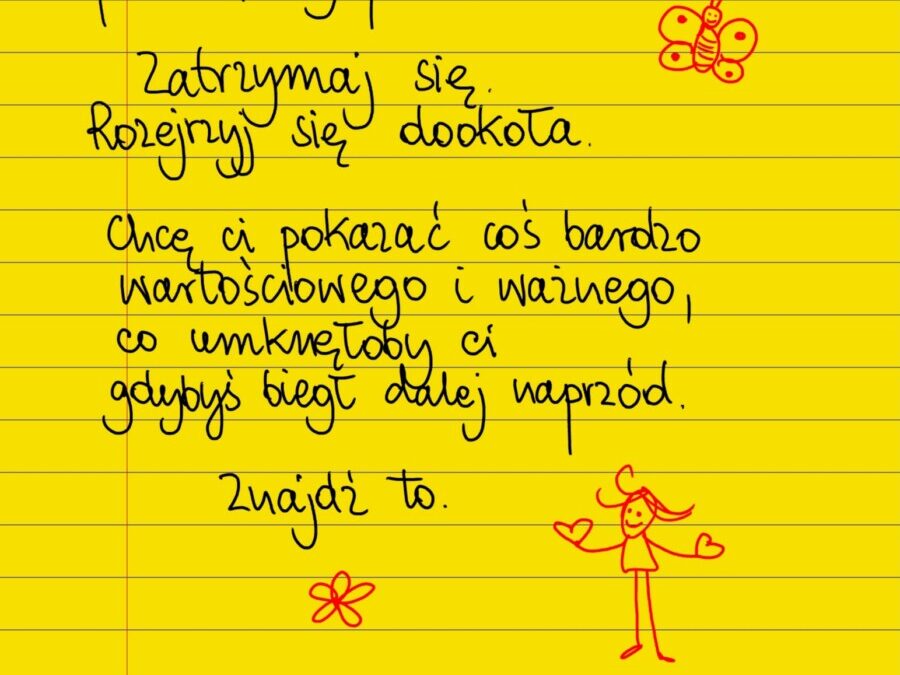 Zatrzymaj się.
Rozejrzyj się dookoła.
Chcę ci pokazać coś bardzo
wartościowego i ważnego,
co umknęłoby ci
gdybyś biegł dalej naprzód.
Znajdź to.